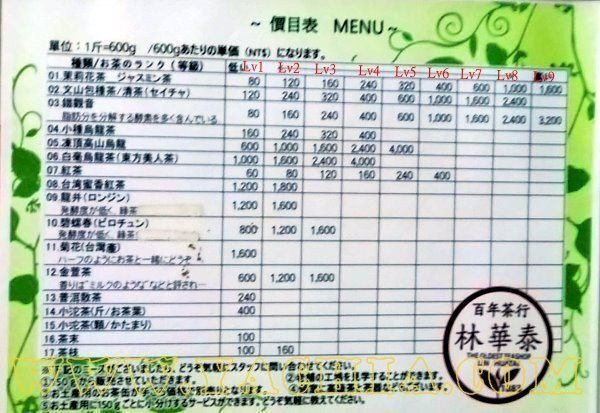 ~ 價目表 MENU ~
単位：1斤=600g /600gあたりの単価 (NT$) になります。
種類/お茶のランク (等級) 低 Lv1 Lv2 Lv3 Lv4 Lv5 Lv6 Lv7 Lv8 Lv9
01.茉莉花茶 ジャスミン茶 80 120 160 240 320 400 600 1,000 1,600
02.文山包種茶/清茶(セイチャ) 120 240 320 400 600 1,000 1,600 2,400
03.鐵觀音
脂肪分を分解する酵素を多く含んでいる 80 160 240 400 600 1,000 1,600 2,400 3,200
04.小種烏龍茶 160 240 320 400
05.凍頂高山烏龍 600 1,000 1,600 2,400 4,000
06.白毫烏龍茶(東方美人茶) 1,000 1,600 2,400 4,000
07.紅茶 60 80 120 160 240 400
08.台湾蜜香紅茶 1,200 1,800
09.龍井(ロンジン)
発酵度が低く、緑茶 1,200 1,600
10.碧螺春(ピロチュン)
発酵度が低く、緑茶 800 1,200 1,600
11.菊花(台灣産)
ハーフのようにお茶と一緒にどうぞ 1,600
12.金萱茶
香りは"ミルクのような"などと評され… 600 1,200 1,600
13.普洱散茶 240
14.小沱茶(斤/お茶葉) 400
15.小沱茶(顆/かたまり)
16.茶末 100
17.茶枝 100 160
百年茶行
林華泰
THE OLDEST TEASHOP
LIN HUA TAI
※下記のニーズがございましたら、どうぞ気軽にスタッフに問い合わせてください。
①150gから販売させていただきます。 ②お茶の工場を見学することができます。
⑤お土産用に150gごとに小分けするサービスができます。どうぞ気軽に教えてください。